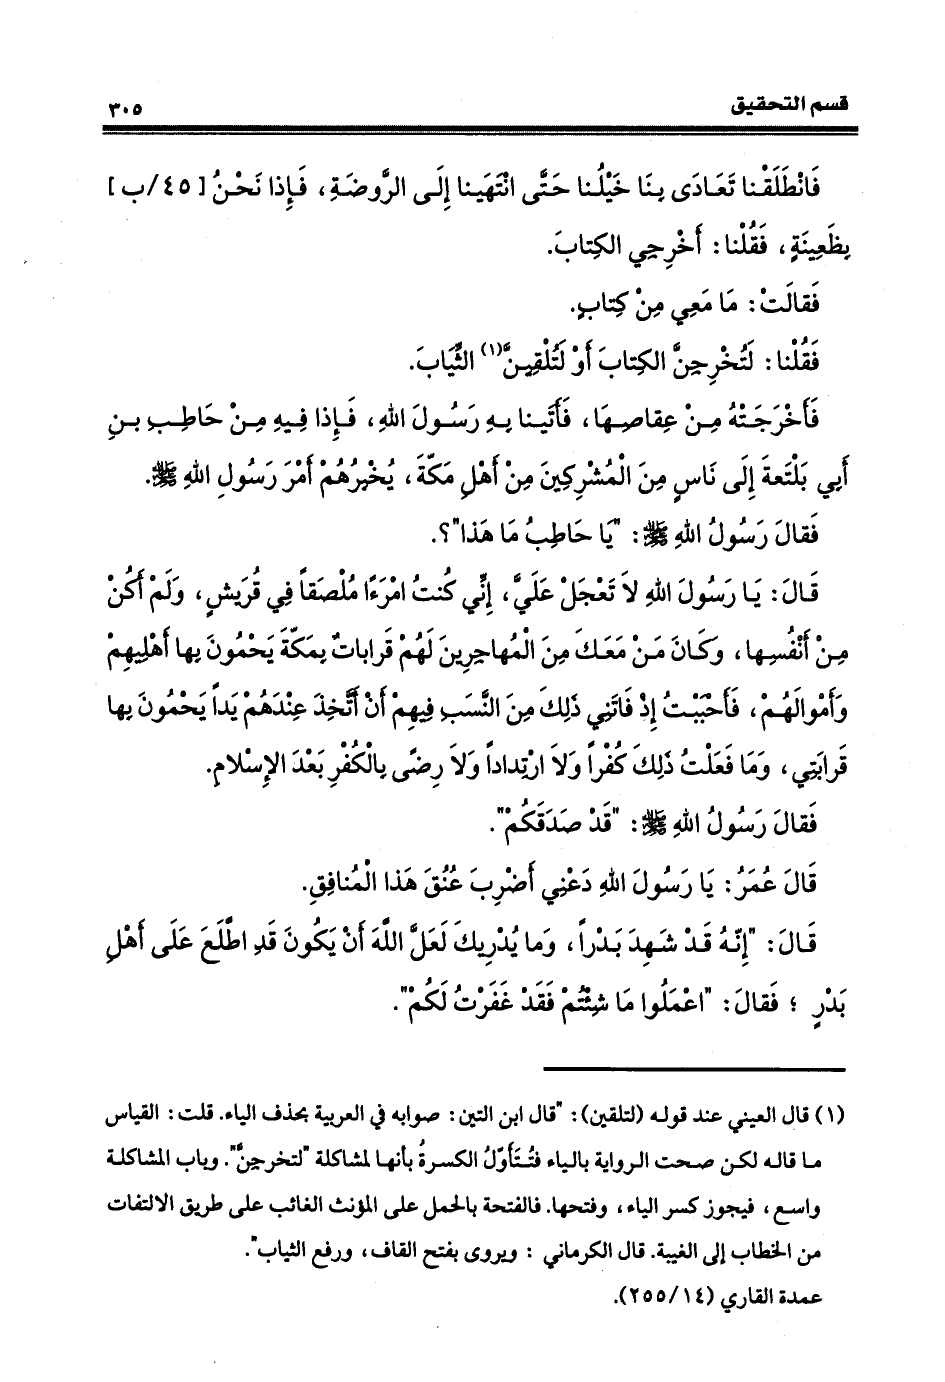 قسم التحقيق ٣٠٥
فَانْطَلَقْنا تَعَادَى بِنَا خَيْلُنا حَتَّى انْتَهَينا إِلَى الرَّوضَةِ، فَإِذا نَحْنُ [٤٥/ب]
بِظَعِينَةٍ، فَقُلْنا: أَخْرِجِي الكِتابَ.
فَقالَتْ: مَا مَعِي مِنْ كِتابٍ.
فَقُلْنا: لَتُخْرِجِنَّ الكِتابَ أَوْ لَتُلْقِينَّ(١) الثِّيَابَ.
فَأَخْرَجَتْهُ مِنْ عِقاصِهَا، فَأَتَينا بِهِ رَسُولَ اللهِ، فَإِذا فِيهِ مِنْ حَاطِبِ بنِ
أَبِي بَلْتَعةَ إِلَى نَاسٍ مِنَ الْمُشْرِكِينَ مِنْ أَهْلِ مَكَّةَ، يُخْبِرُهُمْ أَمْرَ رَسُولِ اللهِ ﷺ.
فَقالَ رَسُولُ اللهِ ﷺ: "يَا حَاطِبُ مَا هَذا"؟.
قَالَ: يَا رَسُولَ اللهِ لاَ تَعْجَلْ عَلَيَّ، إِنِّي كُنتُ امْرَءًا مُلْصَقاً فِي قُرَيشٍ، وَلَمْ أَكُنْ
مِنْ أَنْفُسِها، وكَانَ مَنْ مَعَكَ مِنَ الْمُهاجِرِينَ لَهُمْ قَراباتٌ بِمَكَّةَ يَحْمُونَ بِها أَهْلِيهِمْ
وَأَمْوالَهُمْ، فَأَحْبَبْتُ إِذْ فاتَنِي ذَلِكَ مِنَ النَّسَبِ فِيهِمْ أَنْ أَتَّخِذَ عِنْدَهُمْ يَداً يَحْمُونَ بِها
قَرابَتِي، وَمَا فَعَلْتُ ذَلِكَ كُفْراً وَلاَ ارْتِداداً وَلاَ رِضًى بِالْكُفْرِ بَعْدَ الإِسْلامِ.
فَقالَ رَسُولُ اللهِ ﷺ: "قَدْ صَدَقَكُمْ".
قَالَ عُمَرُ: يَا رَسُولَ اللهِ دَعْنِي أَضْرِبَ عُنُقَ هَذا الْمُنافِقِ.
قَالَ: "إِنَّهُ قَدْ شَهِدَ بَدْراً، وَما يُدْرِيكَ لَعَلَّ اللَّهَ أَنْ يَكُونَ قَدِ اطَّلَعَ عَلَى أَهْلِ
بَدْرٍ ؛ فَقالَ: "اعْمَلُوا مَا شِئْتُمْ فَقَدْ غَفَرْتُ لَكُمْ".
(١) قال العيني عند قوله (لتلقين): "قال ابن التين: صوابه في العربية بحذف الياء. قلت: القياس
ما قاله لكن صحت الرواية بالياء فتُتَأوّلُ الكسرةُ بأنها لمشاكلة "لتخرجنَّ". وباب المشاكلة
واسع، فيجوز كسر الياء، وفتحها. فالفتحة بالحمل على المؤنث الغائب على طريق الالتفات
من الخطاب إلى الغيبة. قال الكرماني : ويروى بفتح القاف، ورفع الثياب".
عمدة القاري (٢٥٥/١٤).